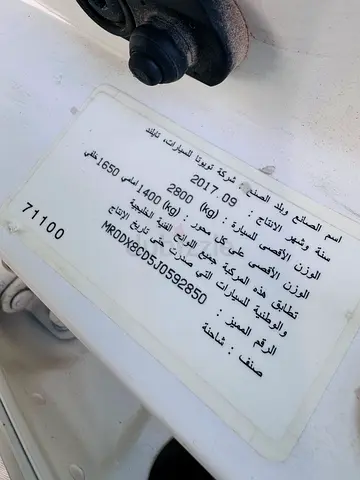 اسم الصانع وبلد الصنع : شركة تويوتا للسيارات، تايلند
سنة وشهر الانتاج : 2017.09
الوزن الأقصى للسيارة : (kg) 2800
الوزن الأقصى على كل محور : (kg) 1400 امامي 1650 خلفي
تطابق هذه المركبة جميع اللوائح الفنية الخليجية
والوطنية للسيارات التي صدرت حتى تاريخ الانتاج
الرقم المميز : MR0DX8CD5J0592850
صنف : شاحنة
71100
dubizzle